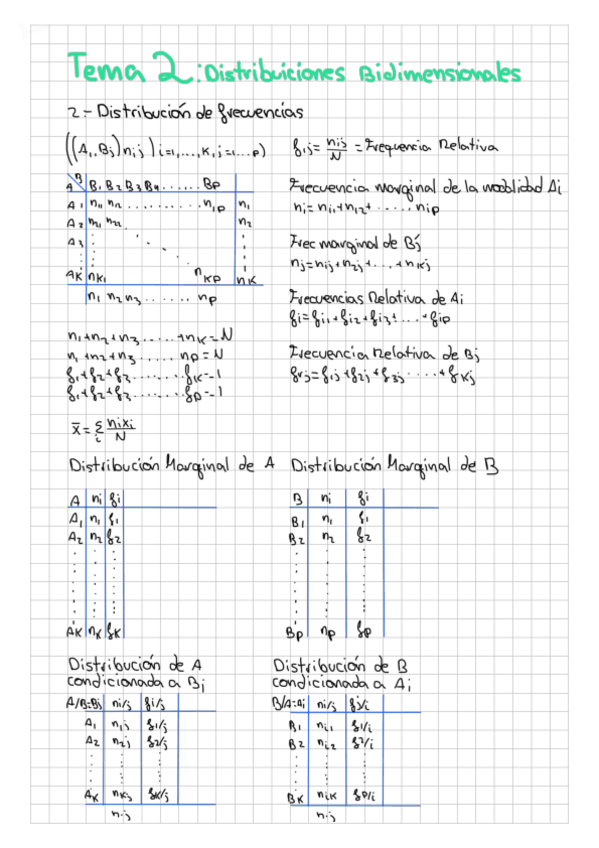 Tema 2: Distribuiciones Bidimensionales
2.- Distribución de frecuencias
((A, Bj) nij) i=1,...,K, j=1...p)
fij = nij/N = Frequencia Relativa
A B B1 B2 B3 B4 ...... Bp
A1 n11 n12 .......... n1p n1
A2 n21 n22 n2
A3
AK nK1 nKp nK
n1 n2 n3 ...... np
Frecuencia marginal de la modlidad Ai
ni = ni1+ni2+ ..... nip
Frec marginal de Bj
nj = nij+n2j+...+nkj
Frecuencias Relativa de Ai
fi = fi1+fi2+fi3+...+fip
Frecuencia Relativa de Bj
frj = f1j+f2j+f3j....+fKj
n1+n2+n3......+nK=N
n1+n2+n3...... np=N
f1+f2+f3........fK=1
f1+f2+f3........fp=1
x̄ = Σi nixi/N
Distribución Marginal de A
A ni fi
A1 n1 f1
A2 n2 f2
AK nK fK
Distribución Marginal de B
B ni fi
B1 n1 f1
B2 n2 f2
Bp np fp
Distribución de A
condicionada a Bj
A/B=Bj ni/j fi/j
A1 n1j f1/j
A2 n2j f2/j
AK nKj fK/j
n.j
Distribución de B
condicionada a Ai
B/A=Ai ni/j fj/i
B1 ni1 f1/i
B2 ni2 f2/i
BK niK fp/i
n.j